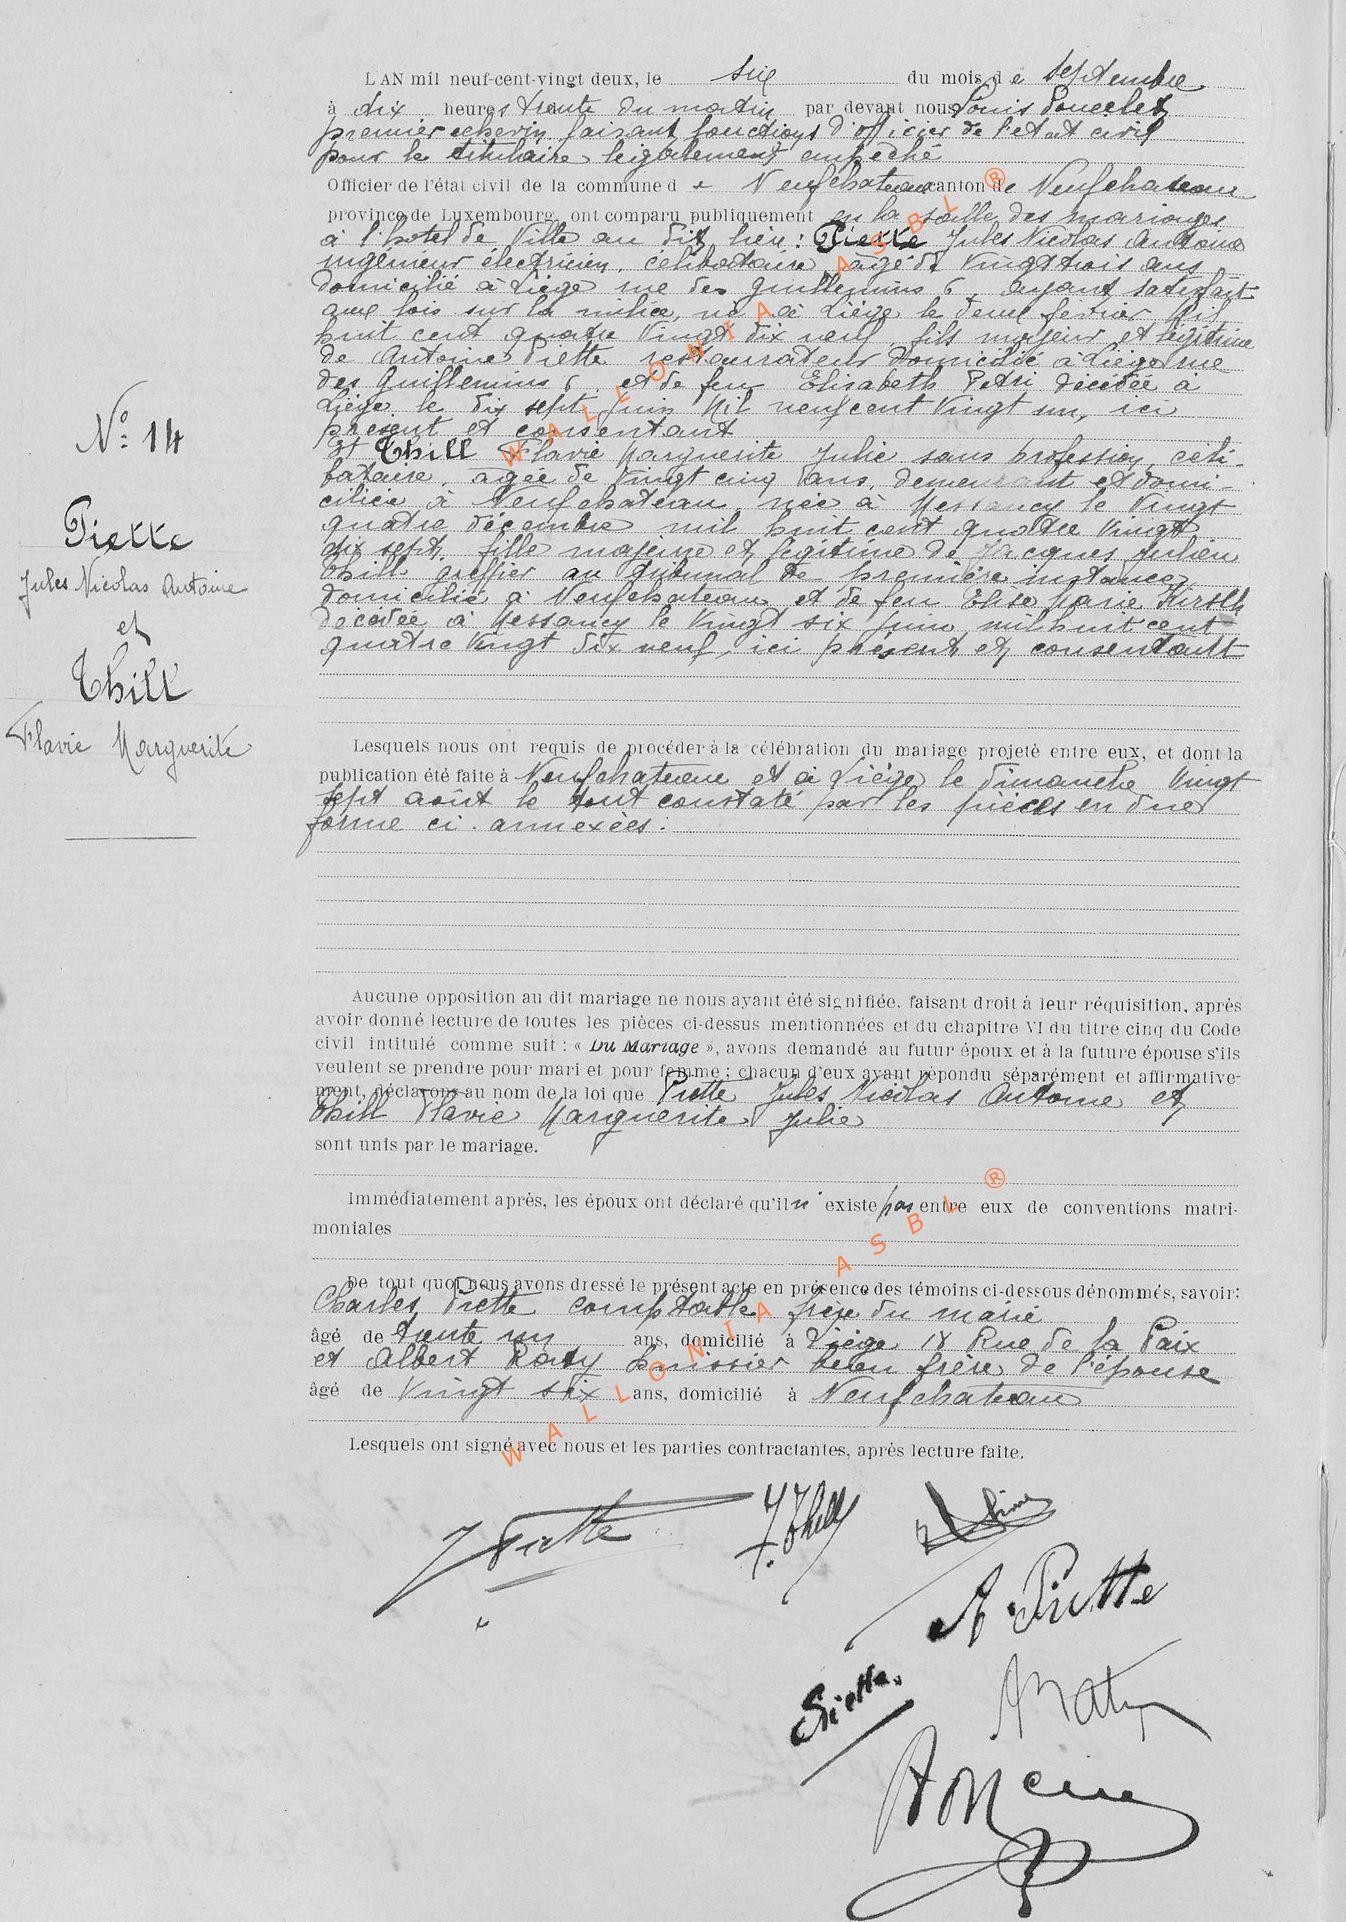 L'AN mil neuf-cent-vingt deux, le six du mois de septembre
à dix heures trente du matin par devant nous Louis
premier échevin faisant fonctions d'officier de l'état civil
pour le titulaire légalement empêché
Officier de l'état civil de la commune de Neufchateau canton de Neufchateau
province de Luxembourg, ont comparu publiquement en la salle des mariages
à l'hotel de Ville au dit lieu : Piette Jules Nicolas Antoine
ingénieur électricien, célibataire, âgé de vingt trois ans
domicilié à Liège rue des Guillemins 6, ayant satisfait
aux lois sur la milice, né à Liège le deux février mil
huit cent quatre vingt dix neuf, fils majeur et légitime
de Antoine Piette restaurateur domicilié à Liège rue
des Guillemins 6, et de feu Elisabeth Petri décédée à
Liège le dix sept juin mil neuf cent vingt un, ici
présent et consentant
Et Thill Flavie Marguerite Julie sans profession, céli-
bataire, âgée de vingt cinq ans, demeurant et domi-
ciliée à Neufchateau, née à Messancy le vingt
quatre décembre mil huit cent quatre vingt
dix sept, fille majeure et légitime de Jacques Julien
Thill greffier au tribunal de première instance,
domicilié à Neufchateau et de feu Elise Marie Hirsch
décédée à Messancy le vingt six juin mil huit cent
quatre vingt dix neuf, ici présent et consentant
N° 14
Piette
Jules Nicolas Antoine
et
Thill
Flavie Marguerite
Lesquels nous ont requis de procéder à la célébration du mariage projeté entre eux, et dont la
publication été faite à Neufchateau et à Liège le dimanche vingt
sept août le tout constaté par les pièces en due
forme ci-annexées.
Aucune opposition au dit mariage ne nous ayant été signifiée, faisant droit à leur réquisition, après
avoir donné lecture de toutes les pièces ci-dessus mentionnées et du chapitre VI du titre cinq du Code
civil intitulé comme suit : « Du Mariage », avons demandé au futur époux et à la future épouse s'ils
veulent se prendre pour mari et pour femme ; chacun d'eux ayant répondu séparément et affirmative-
ment, déclarons au nom de la loi que Piette Jules Nicolas Antoine et
Thill Flavie Marguerite Julie
sont unis par le mariage.
Immédiatement après, les époux ont déclaré qu'il n'existe pas entre eux de conventions matri-
moniales
De tout quoi nous avons dressé le présent acte en présence des témoins ci-dessous dénommés, savoir:
Charles Piette comptable frère du marié
âgé de trente un ans, domicilié à Liège 18 Rue de la Paix
et Albert Raty huissier beau frère de l'épouse
âgé de vingt six ans, domicilié à Neufchateau
Lesquels ont signé avec nous et les parties contractantes, après lecture faite.
J Piette
F. Thill
A Piette
Piette.
A Raty
WALLONIA ASBL ®
WALLONIA ASBL ®